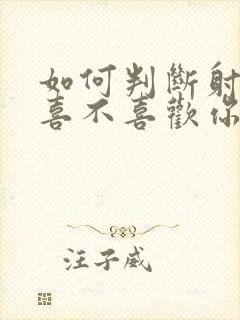 如何判斷射
喜不喜歡你
汪子崴